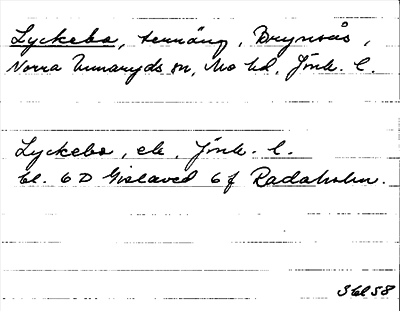 Lyckebo, terräng, Brynsås,
Norra Unnaryds sn, Mo hd, Jönk. l.
Lyckebo, ek, Jönk. l.
bl. 6 D Gislaved 6 f Radaholm.